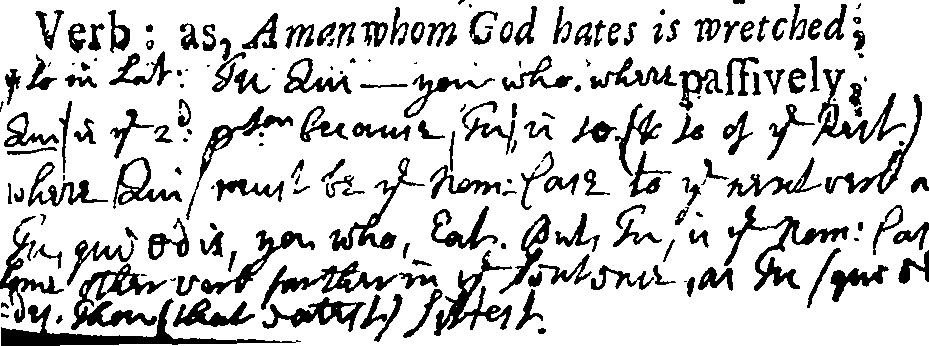 Verb: as, A man whom God hates is wretched;
so in Lat: Tu Qui — you who. where passively,
Qui is yͤ 2ᵈ pson because Tu is so (& so of yͤ Rest.)
where Qui must be yͤ Nom: Case to yͤ next verb
Tu, qui edis, you who, Eat. But, Tu, is yͤ Nom: Cas
some other verb further in yͤ Sentence, as Tu (qui
Thou (that eatest) Sittest.